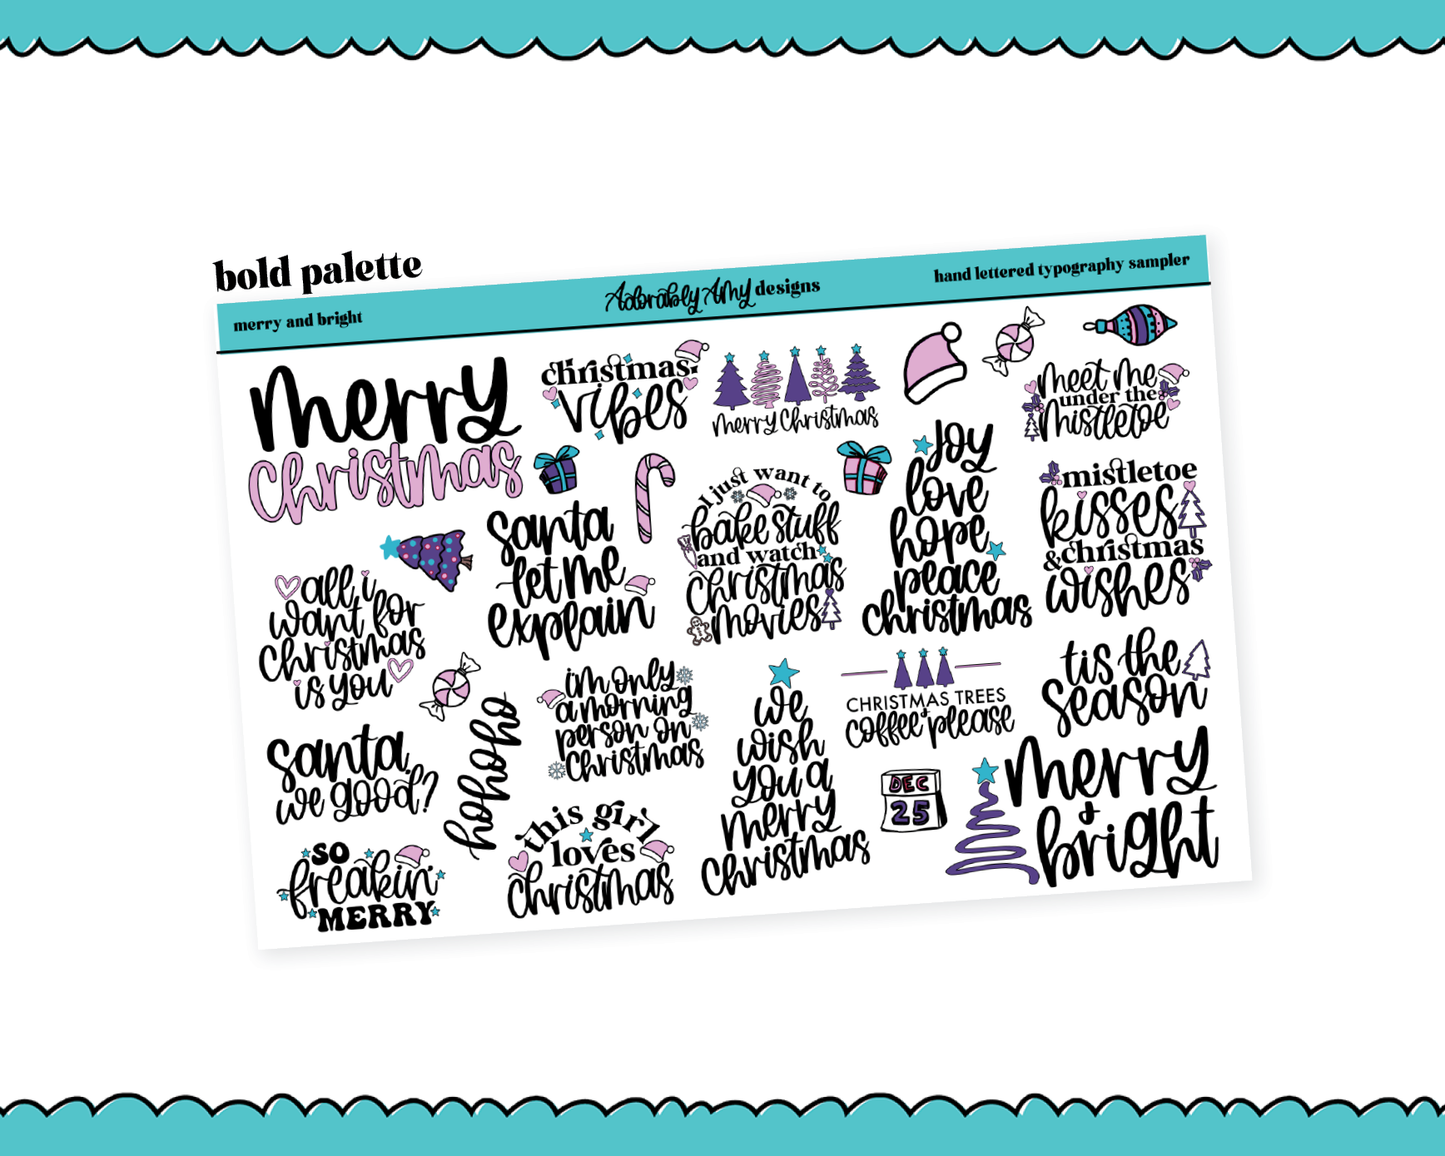 bold palette
merry and bright
Adorably Amy designs
hand lettered typography sampler
merry
Christmas
christmas
vibes
merry Christmas
meet me
under the
mistletoe
joy
love
hope
peace
christmas
mistletoe
kisses
& christmas
wishes
santa
let me
explain
I just want to
bake stuff
and watch
christmas
movies
all i
want for
christmas
is you
i'm only
a morning
person on
Christmas
we
wish
you a
merry
christmas
CHRISTMAS TREES
coffee + please
tis the
season
santa,
we good?
hohoho
DEC
25
merry
+
bright
so
freakin'
MERRY
this girl
loves
christmas